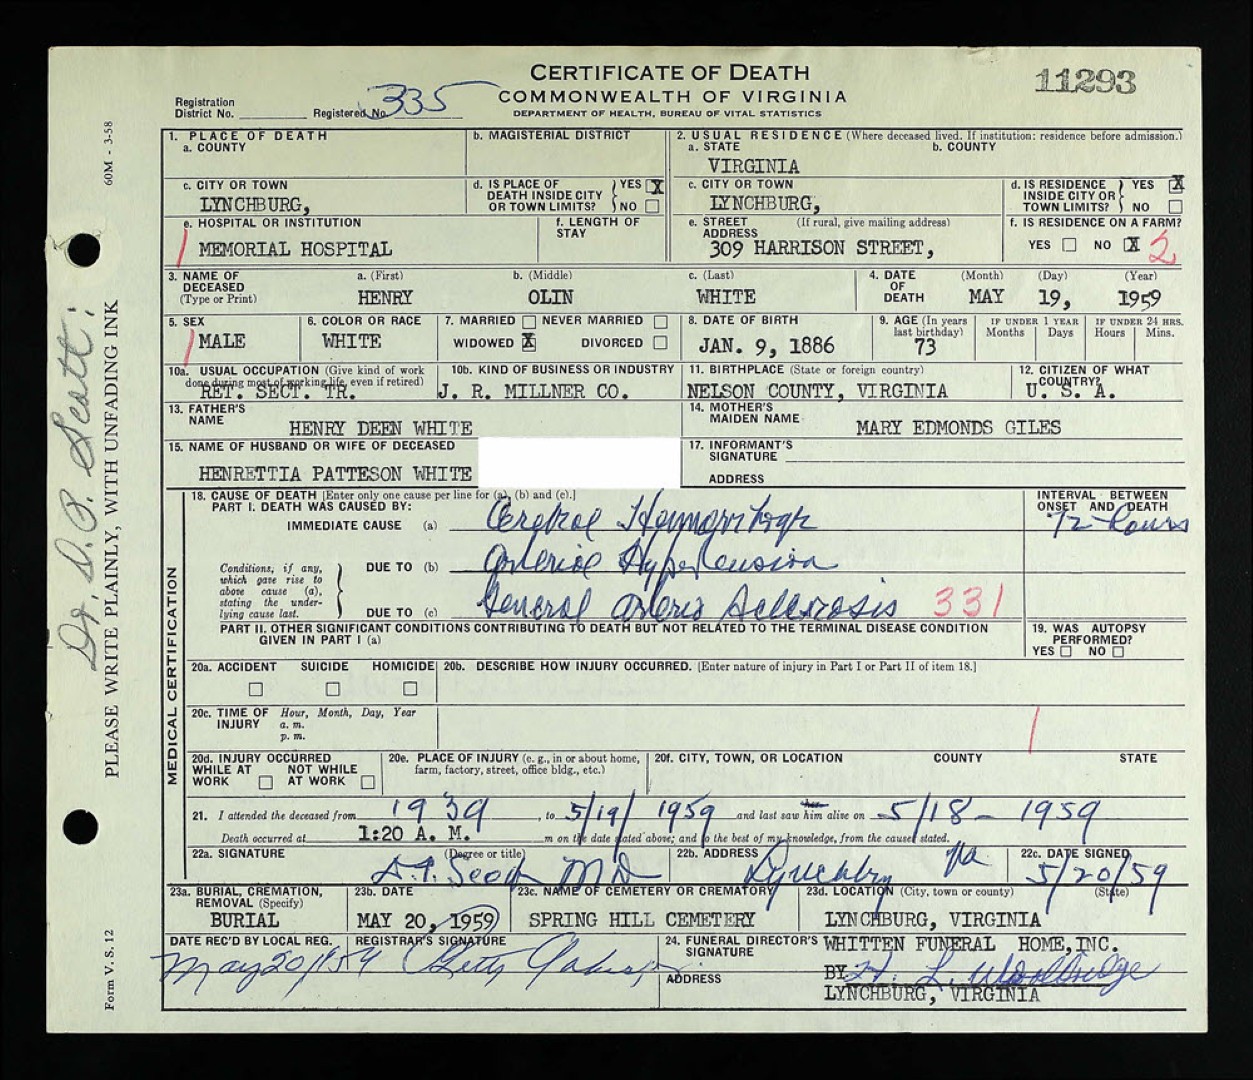 CERTIFICATE OF DEATH
COMMONWEALTH OF VIRGINIA
DEPARTMENT OF HEALTH, BUREAU OF VITAL STATISTICS
11293
Registration District No. Registered No. 335
60M - 3-58
1. PLACE OF DEATH
a. COUNTY
b. MAGISTERIAL DISTRICT
2. USUAL RESIDENCE (Where deceased lived. If institution: residence before admission.)
a. STATE b. COUNTY
VIRGINIA
c. CITY OR TOWN
LYNCHBURG,
d. IS PLACE OF DEATH INSIDE CITY OR TOWN LIMITS? YES X NO
c. CITY OR TOWN
LYNCHBURG,
d. IS RESIDENCE INSIDE CITY OR TOWN LIMITS? YES X NO
e. HOSPITAL OR INSTITUTION
MEMORIAL HOSPITAL
f. LENGTH OF STAY
e. STREET ADDRESS (If rural, give mailing address)
309 HARRISON STREET,
f. IS RESIDENCE ON A FARM?
YES NO X 2
3. NAME OF DECEASED (Type or Print)
a. (First) b. (Middle) c. (Last)
HENRY OLIN WHITE
4. DATE OF DEATH (Month) (Day) (Year)
MAY 19, 1959
5. SEX
MALE
6. COLOR OR RACE
WHITE
7. MARRIED NEVER MARRIED
WIDOWED X DIVORCED
8. DATE OF BIRTH
JAN. 9, 1886
9. AGE (In years last birthday)
73
IF UNDER 1 YEAR Months Days
IF UNDER 24 HRS. Hours Mins.
10a. USUAL OCCUPATION (Give kind of work done during most of working life, even if retired)
RET. SECT. TR.
10b. KIND OF BUSINESS OR INDUSTRY
J. R. MILLNER CO.
11. BIRTHPLACE (State or foreign country)
NELSON COUNTY, VIRGINIA
12. CITIZEN OF WHAT COUNTRY?
U. S. A.
13. FATHER'S NAME
HENRY DEEN WHITE
14. MOTHER'S MAIDEN NAME
MARY EDMONDS GILES
15. NAME OF HUSBAND OR WIFE OF DECEASED
HENRETTIA PATTESON WHITE
17. INFORMANT'S SIGNATURE
ADDRESS
MEDICAL CERTIFICATION
18. CAUSE OF DEATH [Enter only one cause per line for (a), (b) and (c).]
PART I. DEATH WAS CAUSED BY:
INTERVAL BETWEEN ONSET AND DEATH
IMMEDIATE CAUSE (a) Cerebral Hemorrhage 72 hours
Conditions, if any, which gave rise to above cause (a), stating the underlying cause last.
DUE TO (b) Arterial Hypertension
DUE TO (c) General Arterio Sclerosis 331
PART II. OTHER SIGNIFICANT CONDITIONS CONTRIBUTING TO DEATH BUT NOT RELATED TO THE TERMINAL DISEASE CONDITION GIVEN IN PART I (a)
19. WAS AUTOPSY PERFORMED?
YES NO
20a. ACCIDENT SUICIDE HOMICIDE
20b. DESCRIBE HOW INJURY OCCURRED. [Enter nature of injury in Part I or Part II of item 18.]
20c. TIME OF INJURY Hour, Month, Day, Year
a. m.
p. m.
20d. INJURY OCCURRED
WHILE AT WORK NOT WHILE AT WORK
20e. PLACE OF INJURY (e. g., in or about home, farm, factory, street, office bldg., etc.)
20f. CITY, TOWN, OR LOCATION COUNTY STATE
21. I attended the deceased from 1939, to 5/19/1959 and last saw him her alive on 5/18-1959
Death occurred at 1:20 A. M. m on the date stated above; and to the best of my knowledge, from the causes stated.
22a. SIGNATURE (Degree or title)
MD
22b. ADDRESS
Lynchburg Va
22c. DATE SIGNED
5/20/59
23a. BURIAL, CREMATION, REMOVAL (Specify)
BURIAL
23b. DATE
MAY 20, 1959
23c. NAME OF CEMETERY OR CREMATORY
SPRING HILL CEMETERY
23d. LOCATION (City, town or county) (State)
LYNCHBURG, VIRGINIA
DATE REC'D BY LOCAL REG.
May 20, 1959
REGISTRAR'S SIGNATURE
Betty
24. FUNERAL DIRECTOR'S SIGNATURE
WHITTEN FUNERAL HOME, INC.
BY
ADDRESS
LYNCHBURG, VIRGINIA
Form V. S. 12
PLEASE WRITE PLAINLY, WITH UNFADING INK
Dr. D. P. Scott: